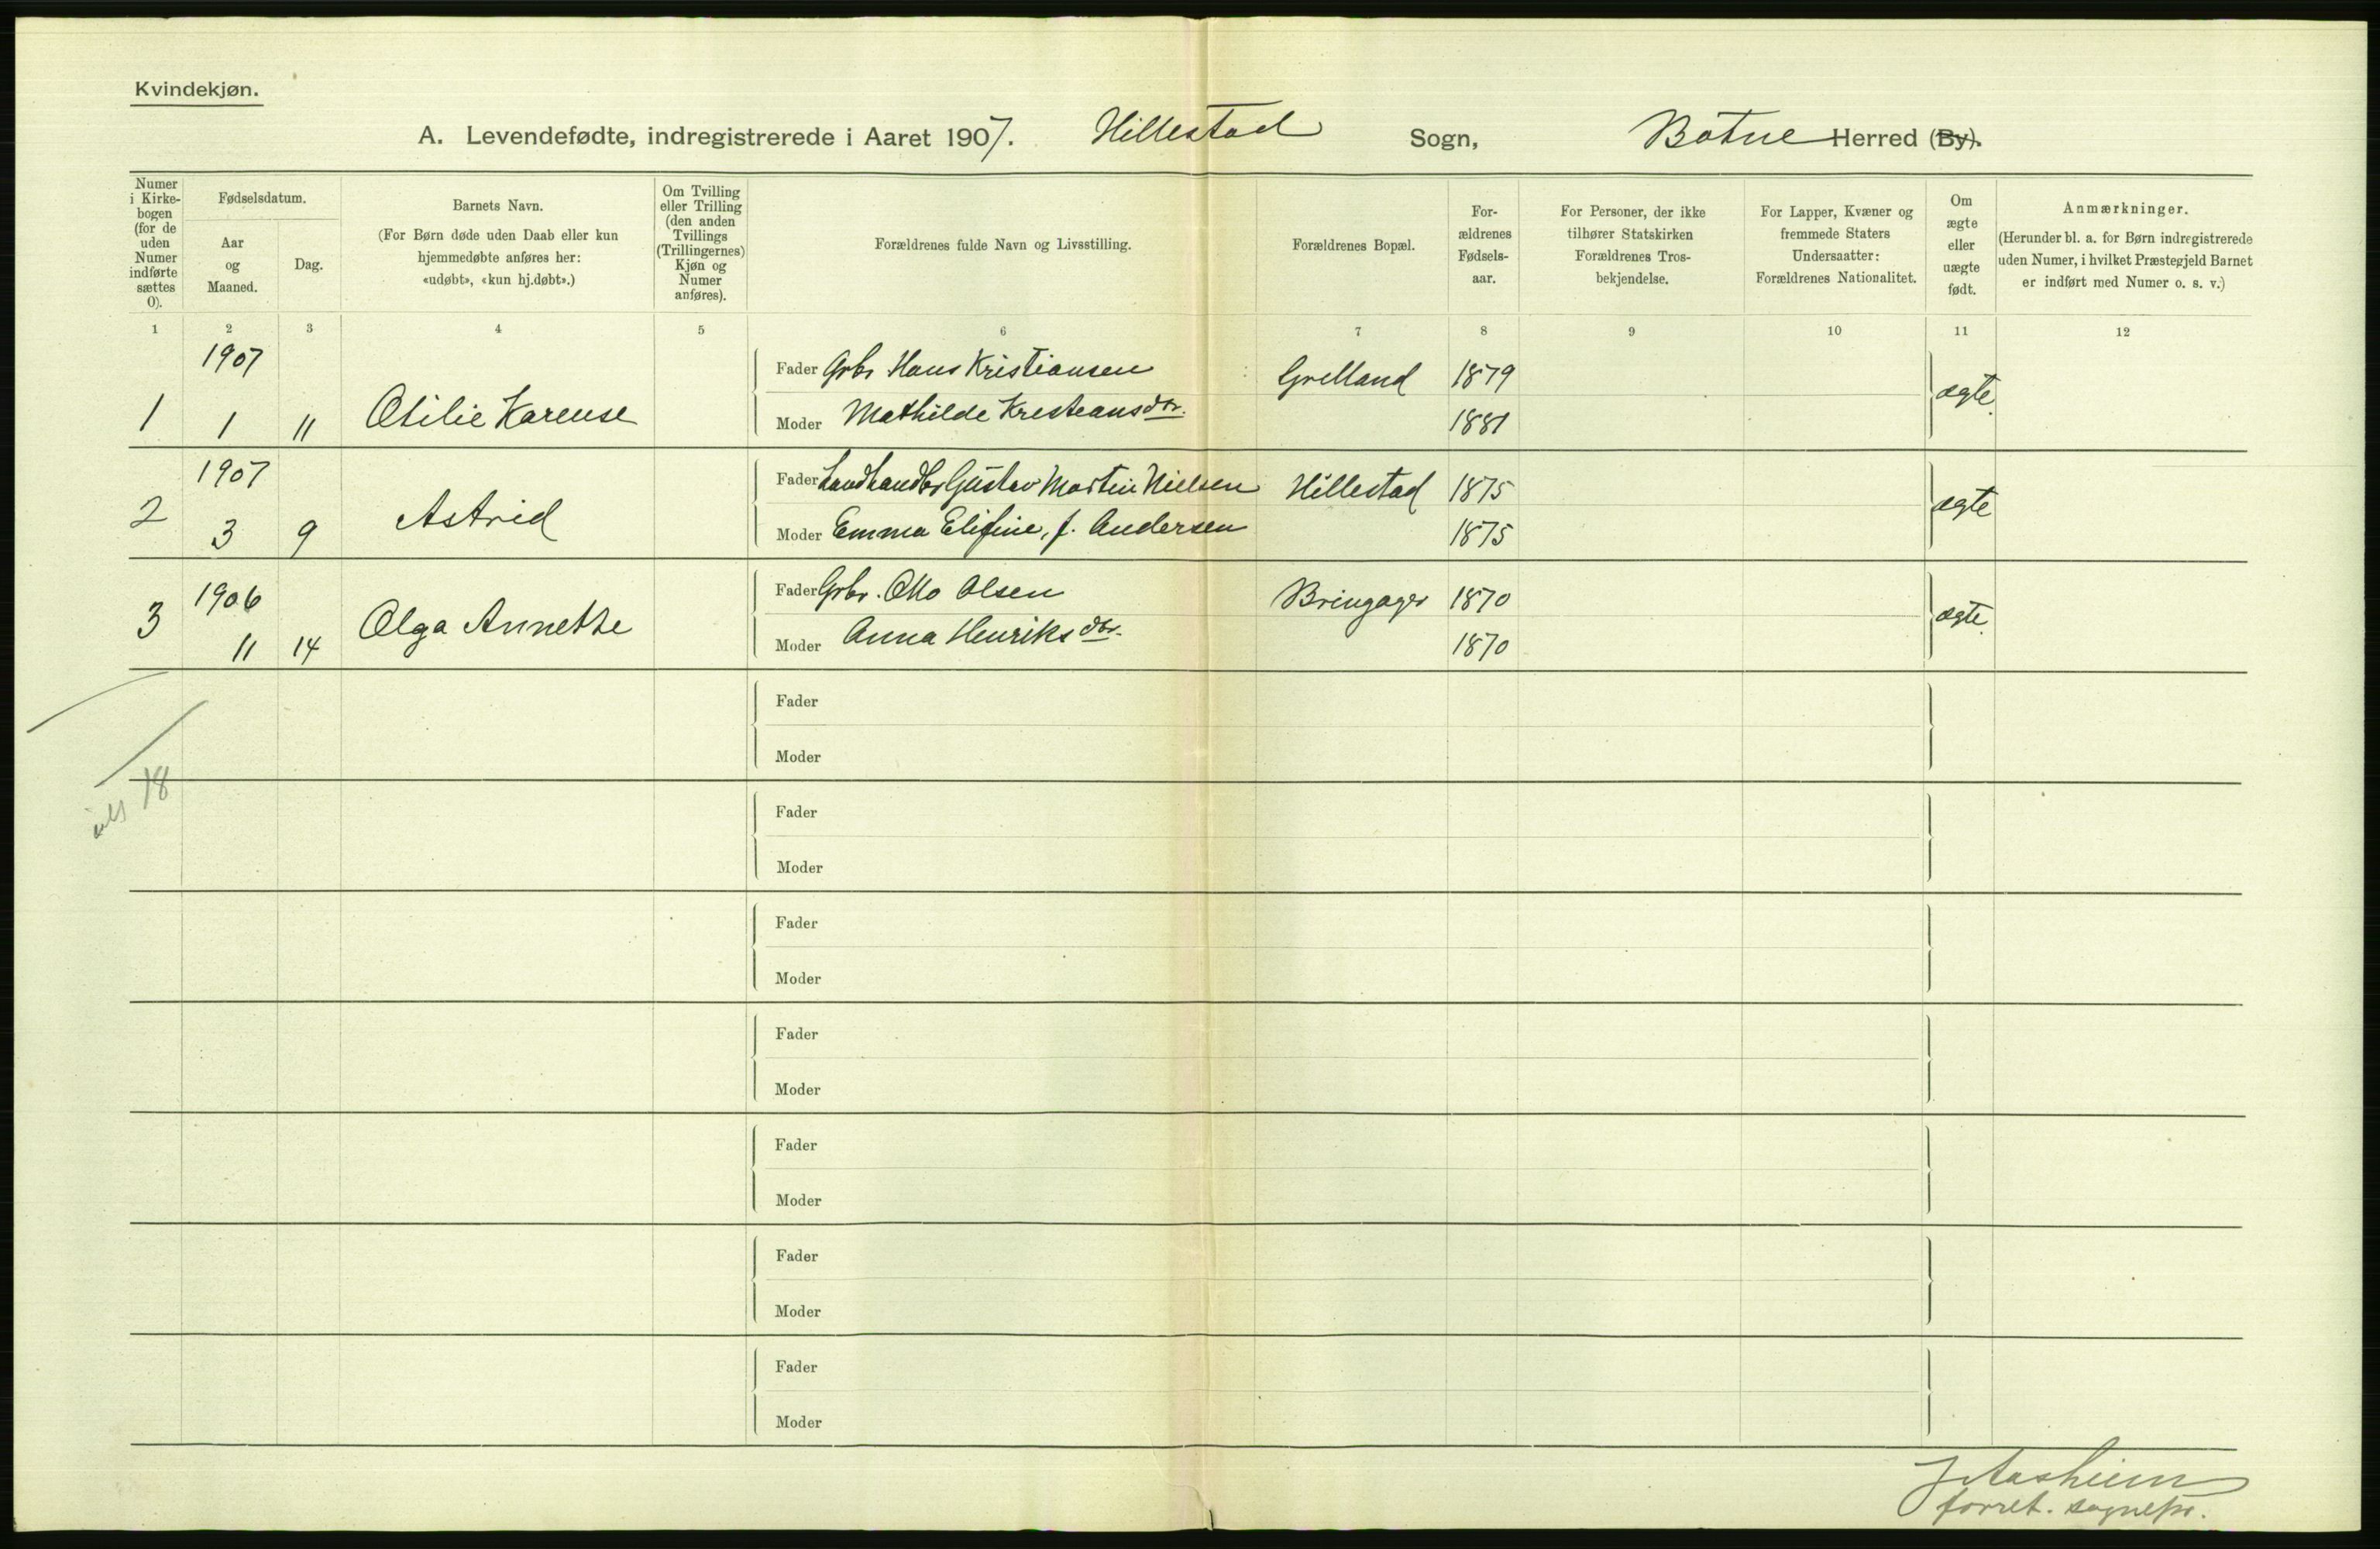 Kvindekjøn.
A. Levendefødte, indregistrerede i Aaret 1907. Hillestad Sogn, Botne Herred (By).
Numer i Kirkebogen (for de uden Numer indførte sættes 0).
Fødselsdatum.
Aar og Maaned.
Dag.
Barnets Navn.
(For Børn døde uden Daab eller kun
hjemmedøbte anføres her:
«udøbt», «kun hj.døbt».)
Om Tvilling
eller Trilling
(den anden
Tvillings
(Trillingernes)
Kjøn og
Numer
anføres).
Forældrenes fulde Navn og Livsstilling.
Forældrenes Bopæl.
For-
ældrenes
Fødsels-
aar.
For Personer, der ikke
tilhører Statskirken
Forældrenes Tros-
bekjendelse.
For Lapper, Kvæner og
fremmede Staters
Undersaatter:
Forældrenes Nationalitet.
Om
ægte
eller
uægte
født.
Anmærkninger.
(Herunder bl. a. for Børn indregistrerede
uden Numer, i hvilket Præstegjeld Barnet
er indført med Numer o. s. v.)
1 2 3 4 5 6 7 8 9 10 11 12
1907
Fader Gbr Hans Kristiansen Grelland 1879 ægte
1 1 11 Otilie Karense
Moder Mathilde Kristeansdtr. 1881
1907
Fader Landhandlr Gustav Martin Nielsen Hillestad 1875 ægte
2 3 9 Astrid
Moder Emma Elifine, f. Andersen 1875
1906
Fader Gbr. Otto Olsen Bringager 1870 ægte
3 11 14 Olga Annette
Moder Anna Henriksdtr. 1870
Fader
Moder
18
Fader
Moder
Fader
Moder
Fader
Moder
Fader
Moder
Fader
Moder
Fader
Moder
J Aasheim
forret. sognepr.